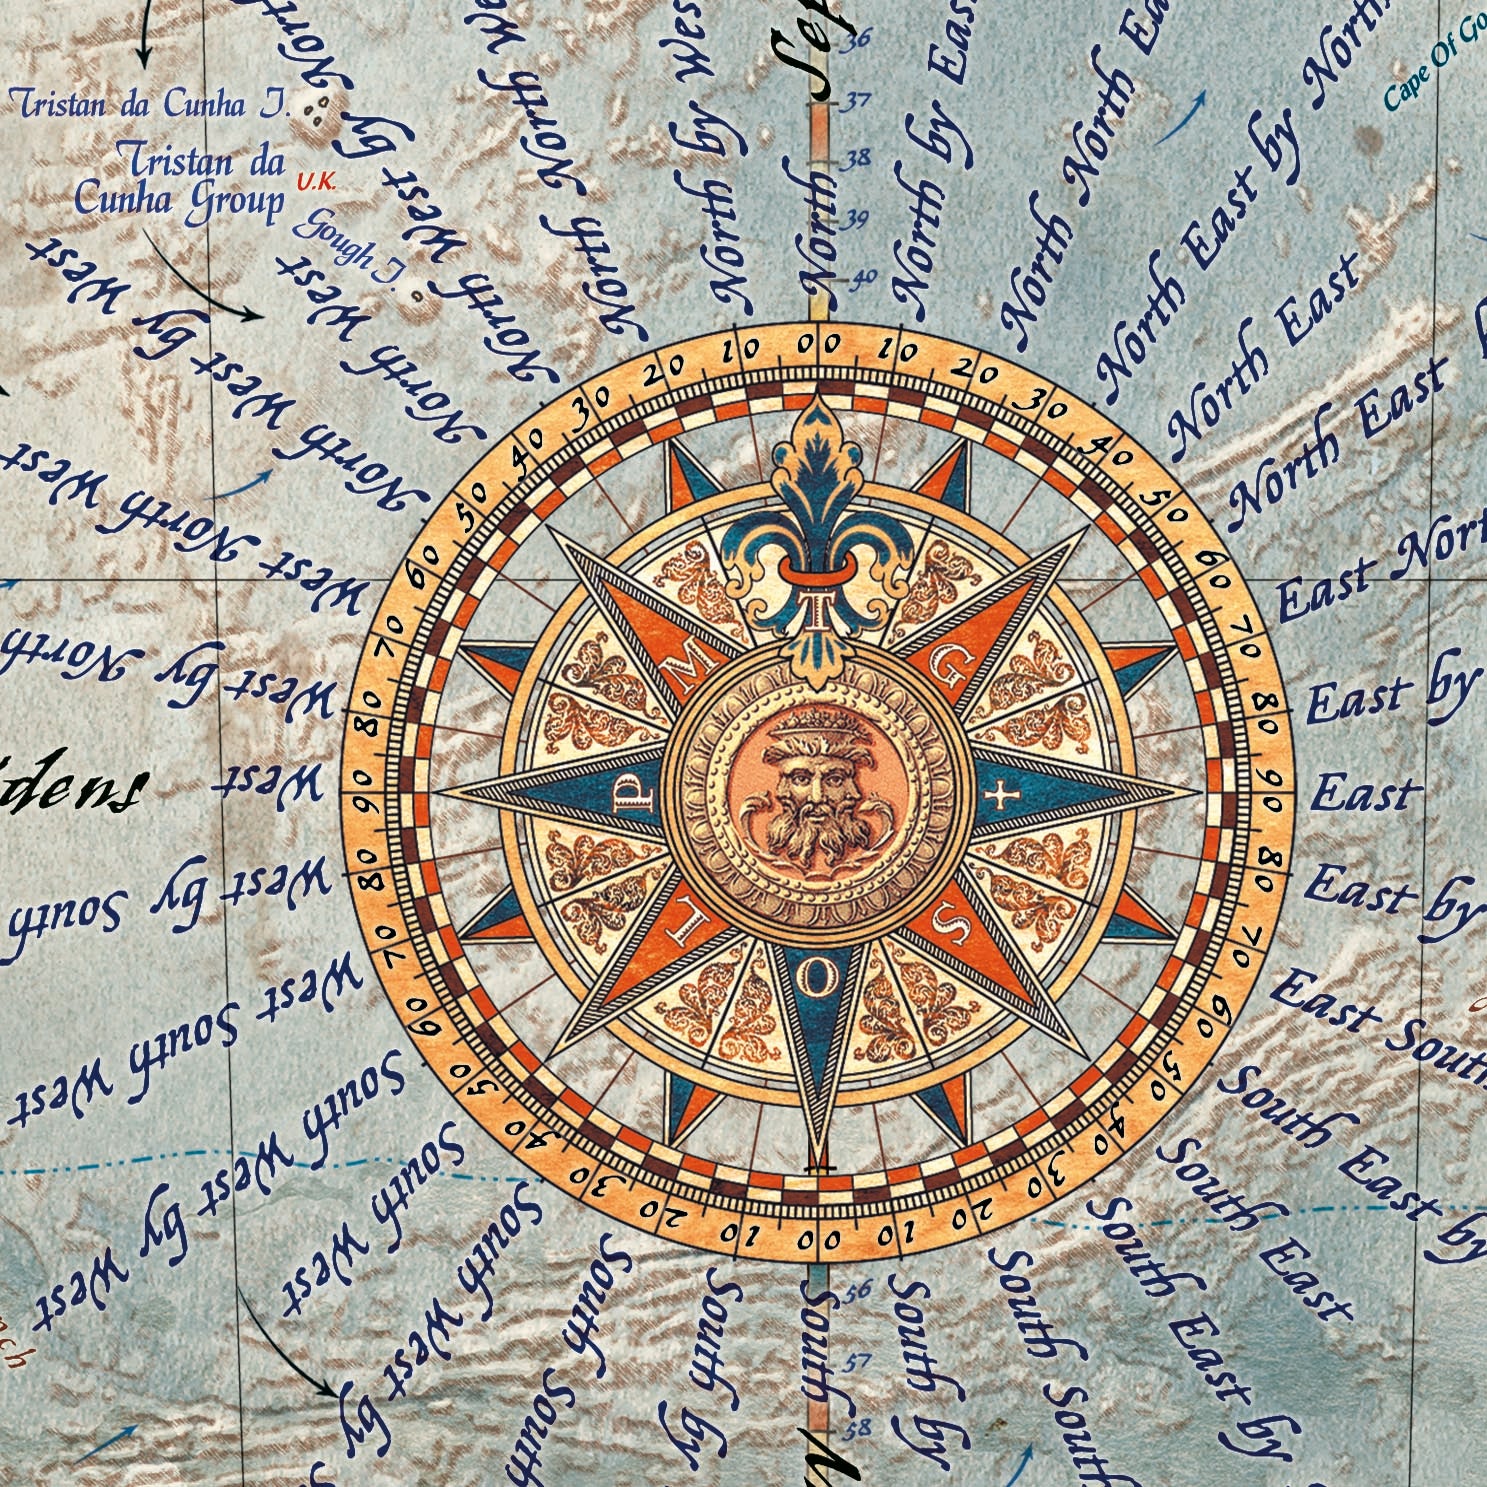 Tristan da Cunha I.
Tristan da
Cunha Group
U.K.
Gough I.
Cape Of
36
37
38
39
40
North
North by East
North North
North East by North
North East
North East
East
East by
East
East by
East South
South East by
South East
South East by
South South
South by
South
56
57
58
South by
South South
South West by
South West
South West by West
West South West
West by South
West
West by North
West North West
North West by West
North West
North West by North
North North West
North by West
dens
00 10 20 30 40 50 60 70 80 90 80 70 60 50 40 30 20 10 00 10 20 30 40 50 60 70 80 90 80 70 60 50 40 30 20 10
T
G
S
O
L
P
M